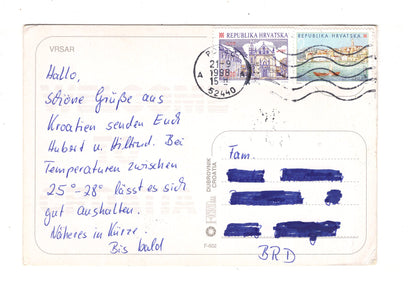 VRSAR
REPUBLIKA HRVATSKA
REPUBLIKA HRVATSKA
21-9
A 1998 A
15
52440
Hallo,
schöne Grüße aus
Kroatien senden Euch
Hubert u. Hiltrud. Bei
Temperaturen zwischen
25°-28° lässt es sich
gut aushalten.
Näheres in Kürze.
Bis bald
DUBROVNIK
CROATIA
Fam.
BRD